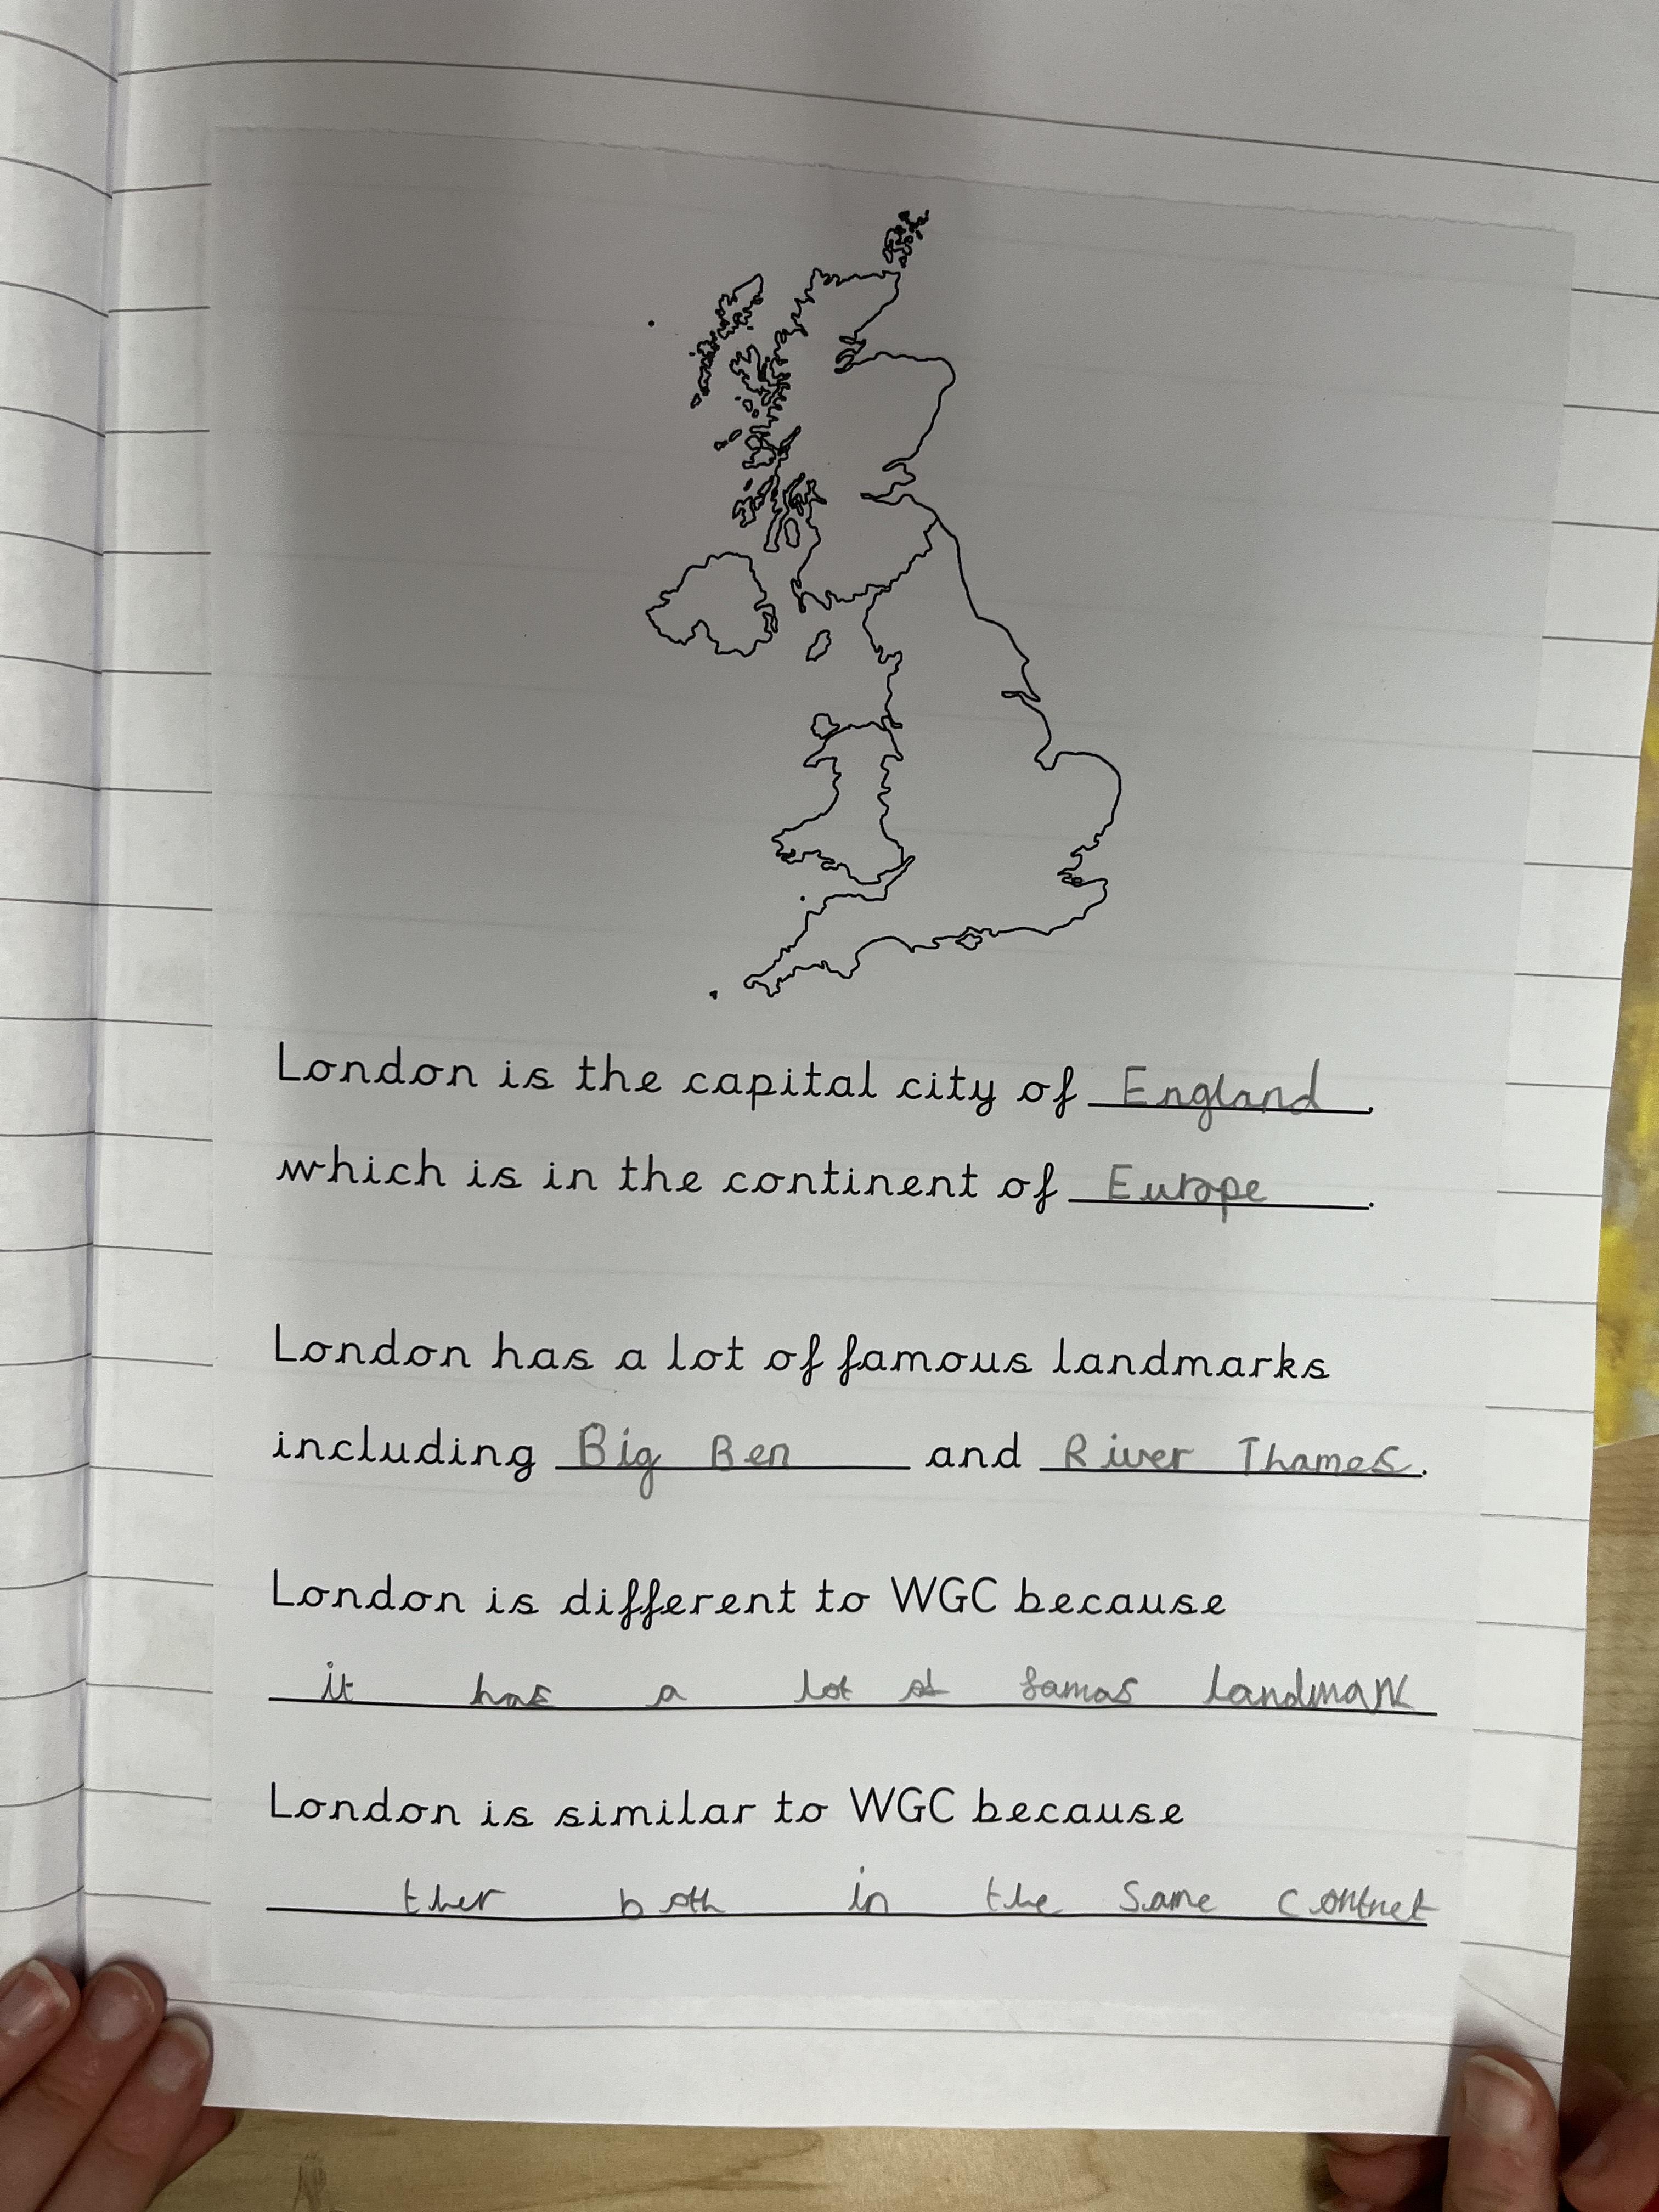 London is the capital city of England,
which is in the continent of Europe.
London has a lot of famous landmarks
including Big Ben and River Thames.
London is different to WGC because
it has a lot of famas landmark
London is similar to WGC because
ther both in the same contnet